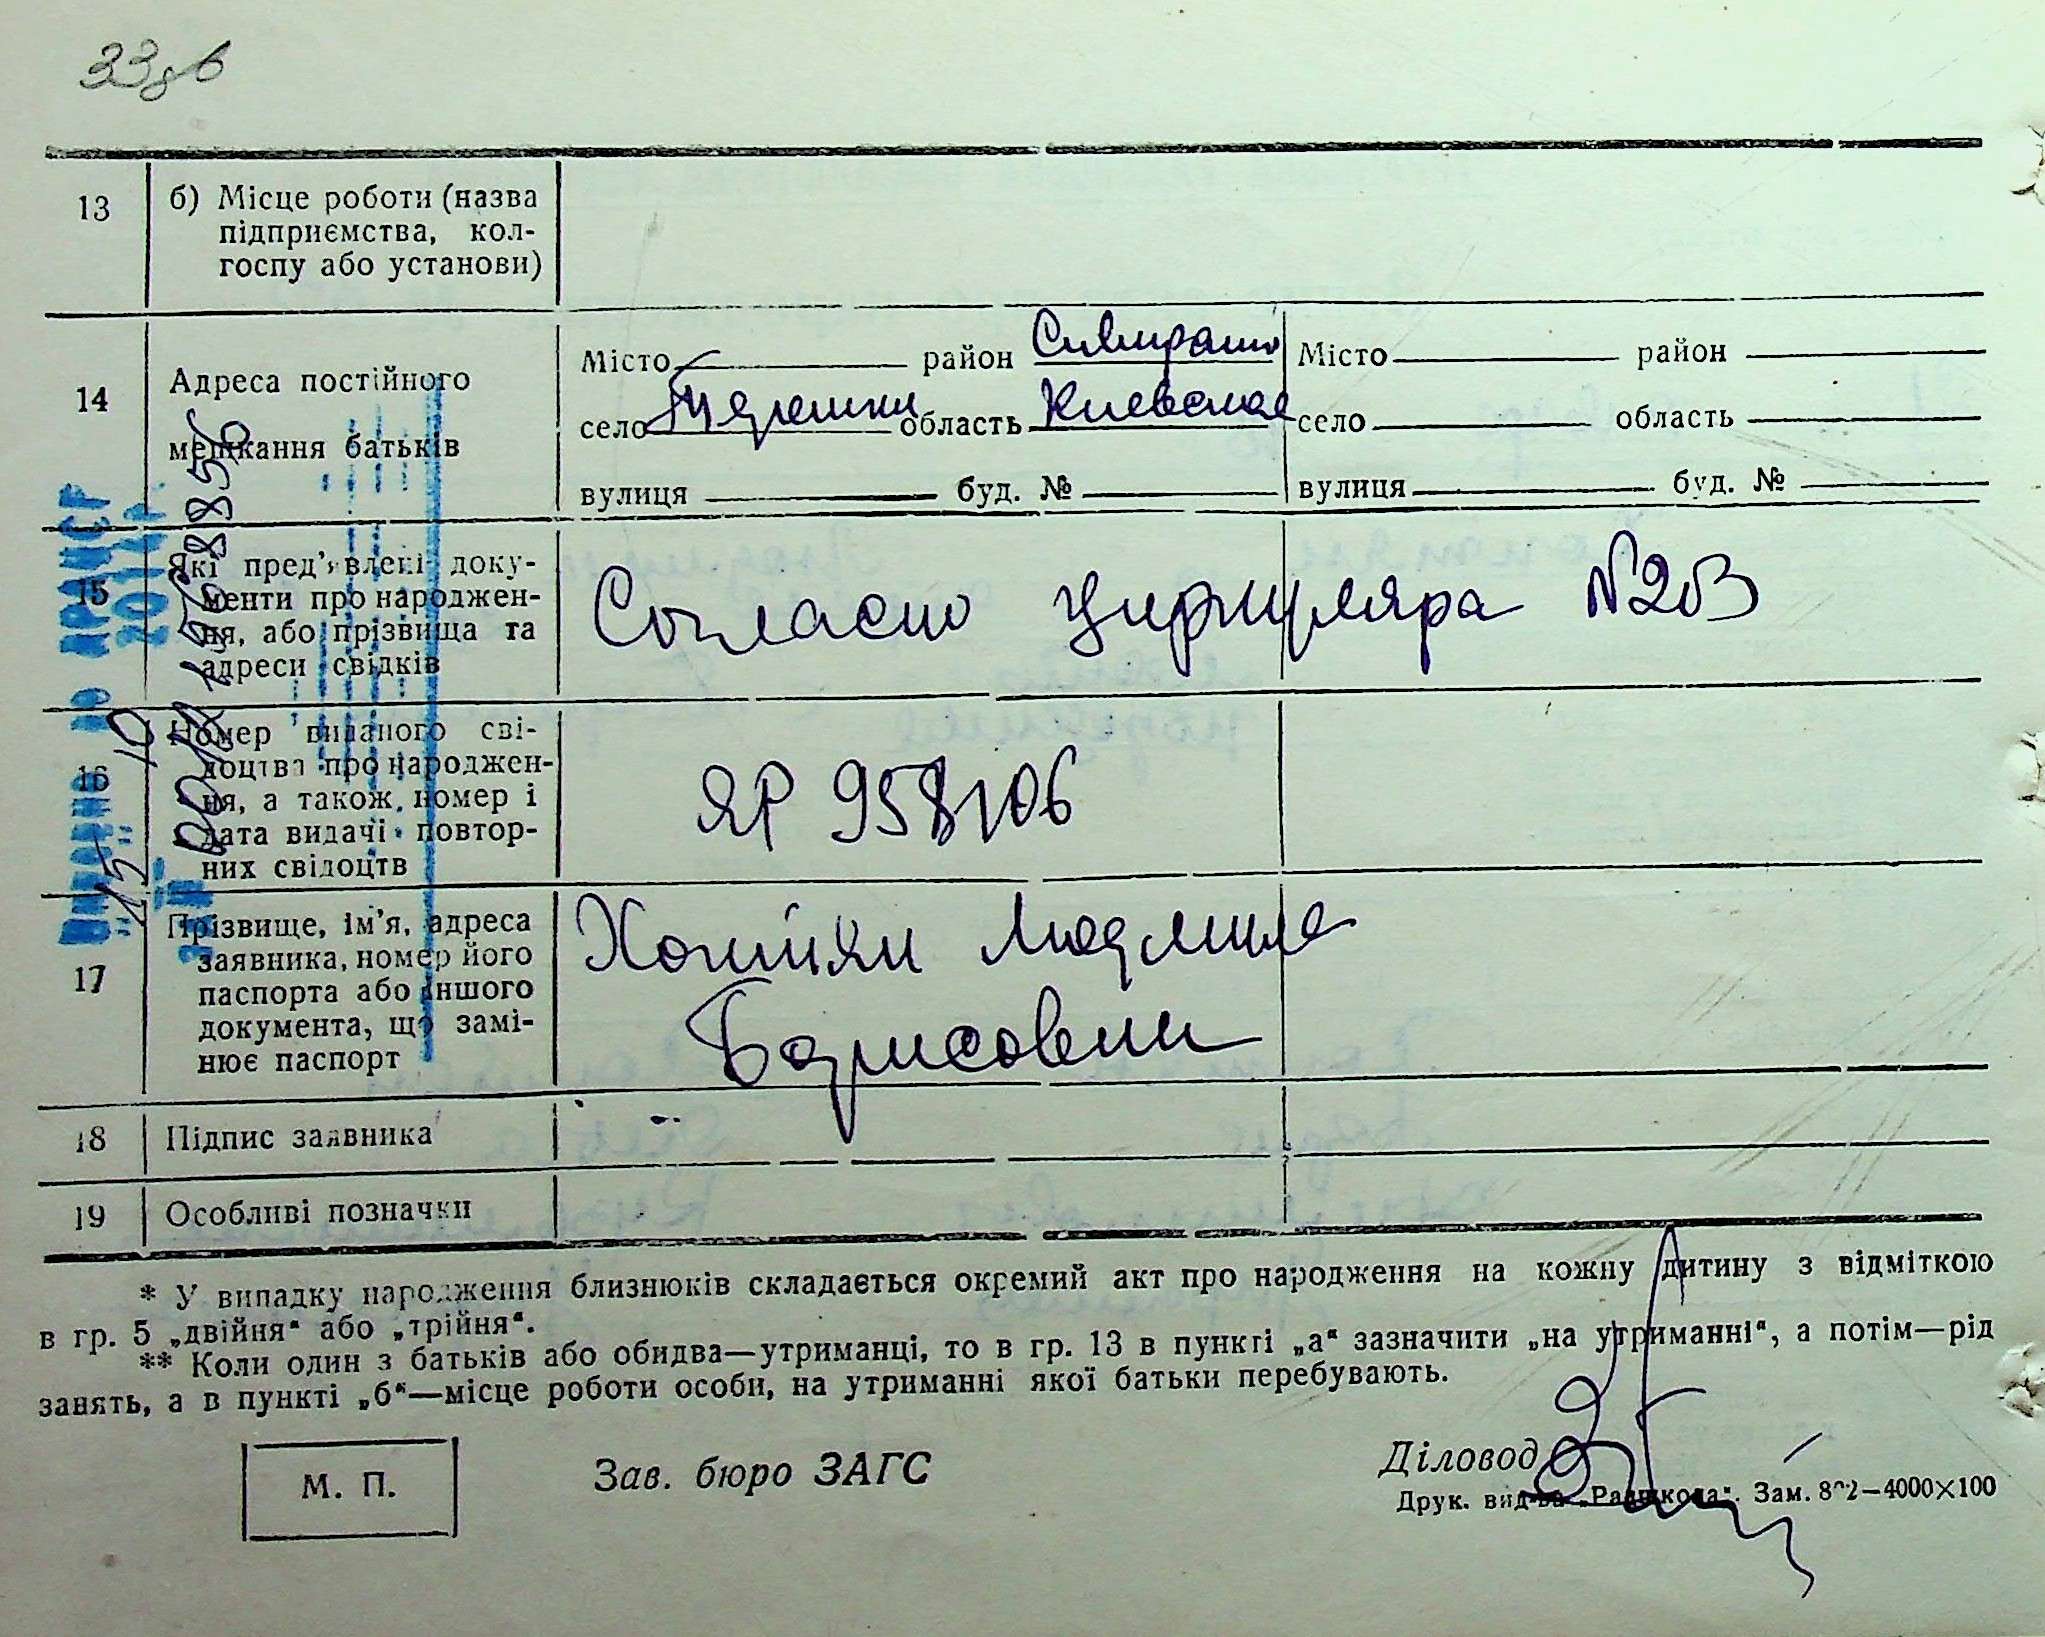 33
13
б) Місце роботи (назва
підприємства, кол-
госпу або установи)
14
Адреса постійного
мешкання батьків
Місто район
село область Киевская
вулиця буд. №
Місто район
село область
вулиця буд. №
15
Які пред'явлені доку-
менти про народжен-
ня, або прізвища та
адреси свідків
Согласно циркуляра №203
16
Номер виданого сві-
доцтва про народжен-
ня, а також номер і
дата видачі повтор-
них свідоцтв
ЯР 958106
17
Прізвище, ім'я, адреса
заявника, номер його
паспорта або іншого
документа, що замі-
нює паспорт
Людмила
Борисовна
18
Підпис заявника
19
Особливі позначки
* У випадку народження близнюків складається окремий акт про народження на кожну дитину з відміткою
в гр. 5 „двійня“ або „трійня“.
** Коли один з батьків або обидва—утриманці, то в гр. 13 в пункті „а“ зазначити „на утриманні“, а потім—рід
занять, а в пункті „б“—місце роботи особи, на утриманні якої батьки перебувають.
М. П.
Зав. бюро ЗАГС
Діловод
Друк. вид-ва „Рад. школа“. Зам. 822—4000×100